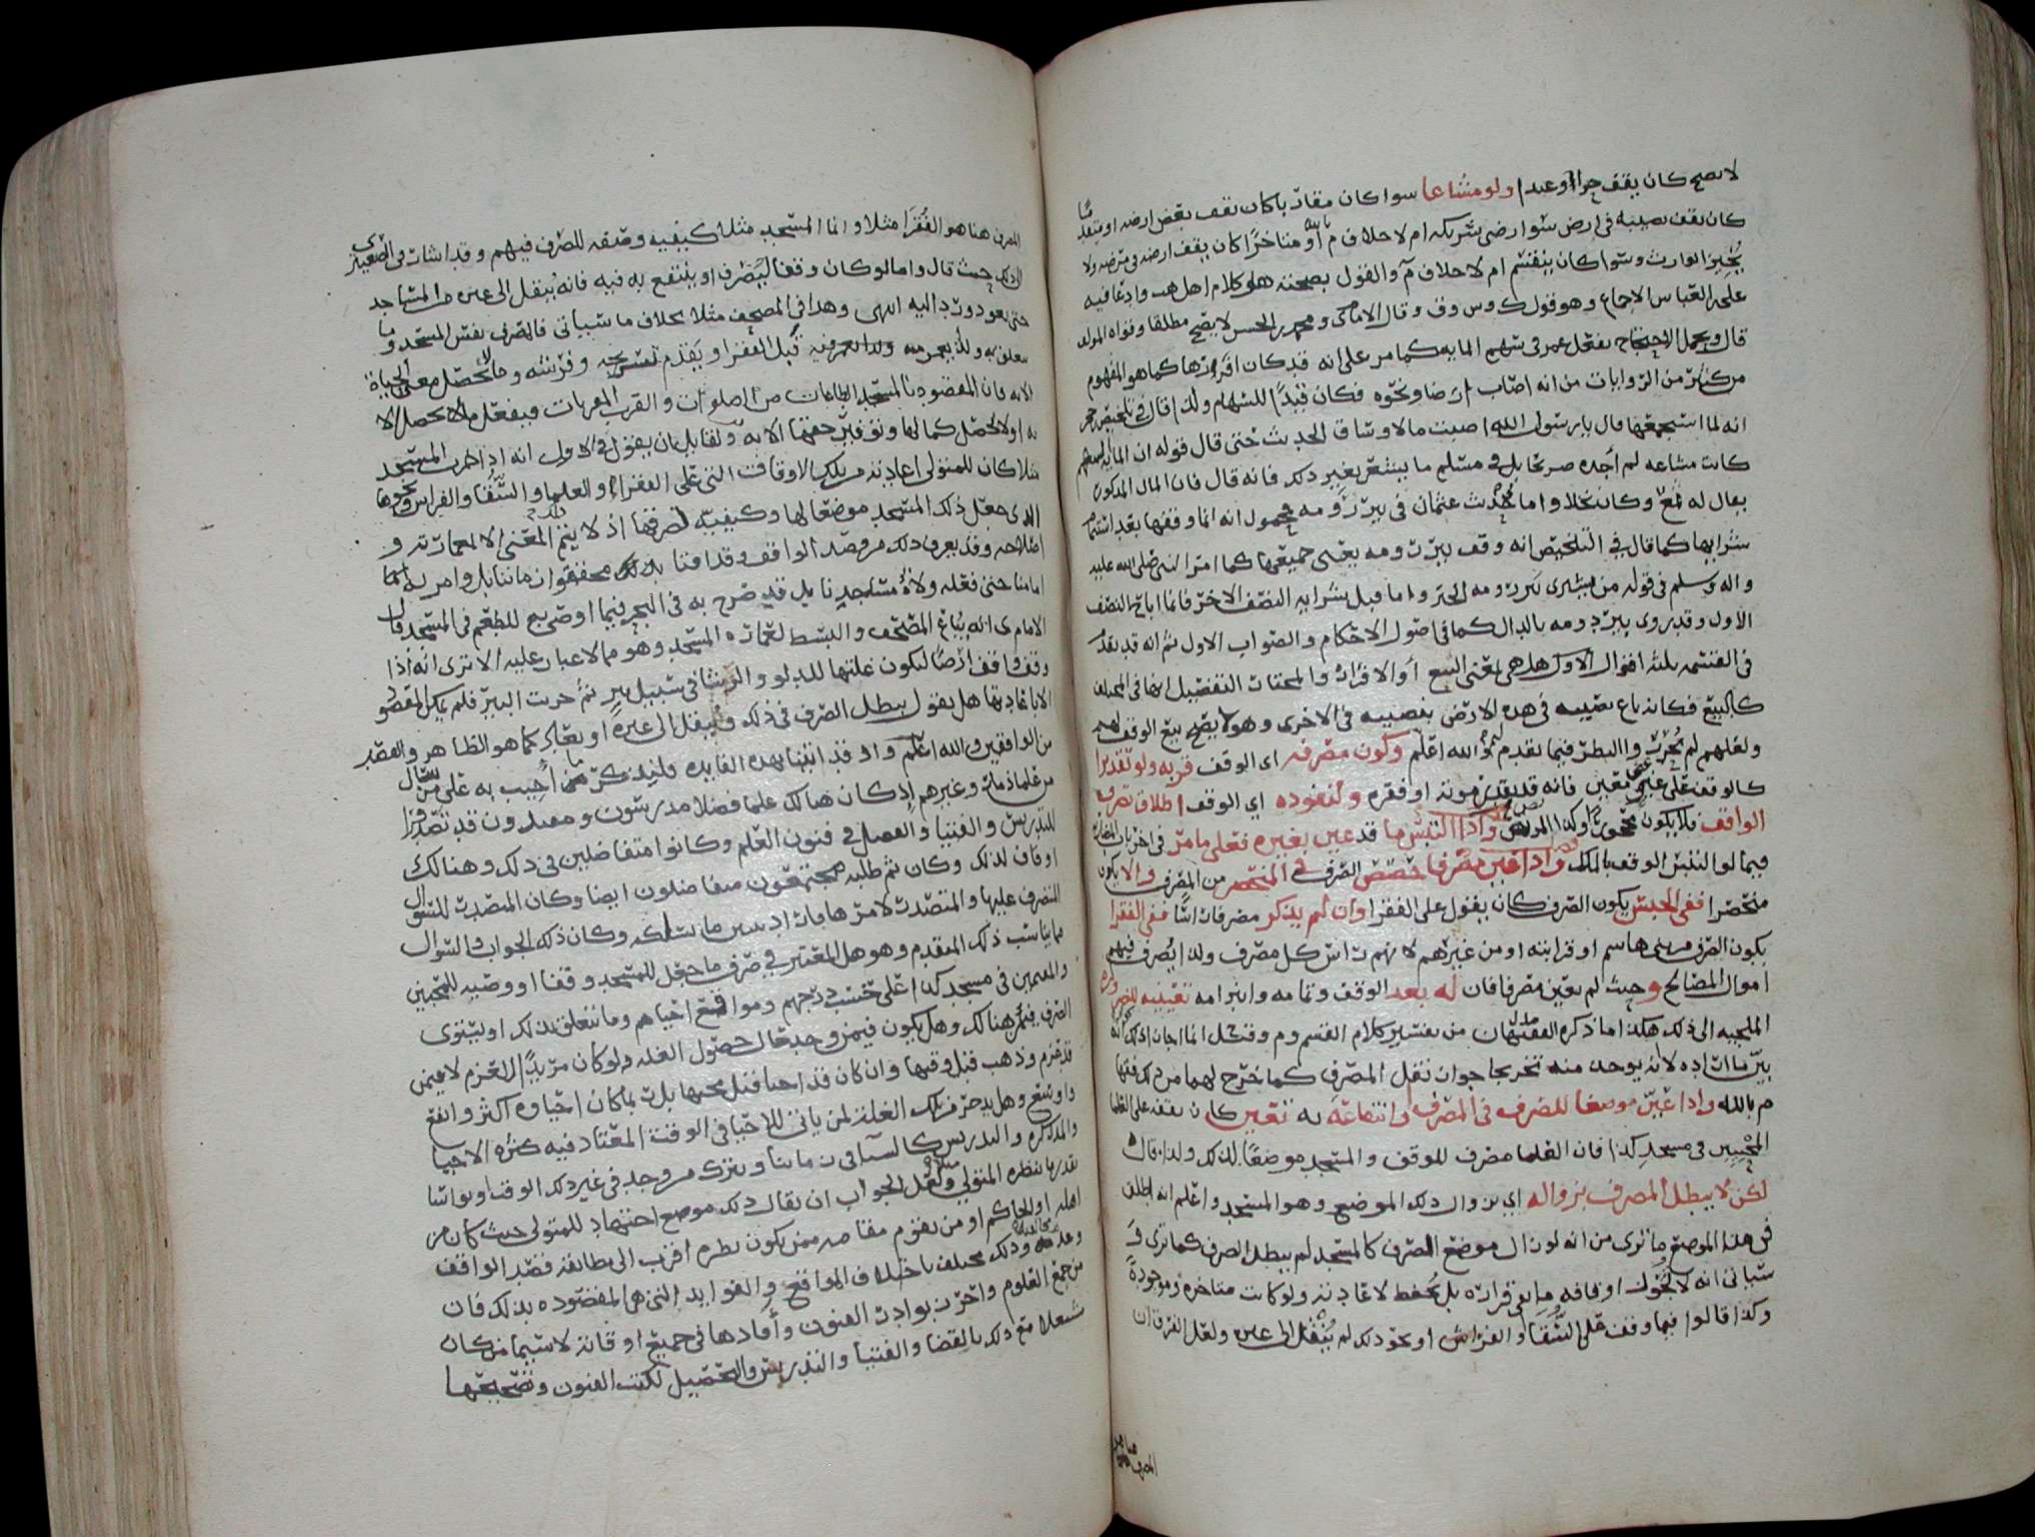 لا يصح كان يقف حرا او عبدا ولو مشاعا سوا كان مقارنا كان يقف بعض ارضه او
كان يقف نصيبه في ارض سوا رضي شريكه ام لا خلاف م بالله او متاخرا كان يقف ارضه في مرضه ولا
يجيز الوارث وسوا كان ينقسم ام لا خلاف م والقول بصحته هو كلام اهل المذهب وادعا فيه
على القياس الاجماع وهو قول ك وس وف وقال الامام ي ومحمد بن الحسن لا يصح مطلقا وقواه المولف
قال ويحمل الاحتجاج بفعل عمر في سهم المايه كما مر على انه قد كان افرزها كما هو المفهوم
من كثير من الروايات من انه اصاب ارضا ونحوه فكان قيدا للسهام ولذا قال في تلخيص ابن حجر
انه لما استجمعها قال يا رسول الله اصبت مالا وساق الحديث حتى قال قوله ان المايه سهم
كانت مشاعه لم اجده صريحا بل في مسلم ما يشعر بغير ذلك فانه قال فان المال المذكور
يقال له ثمغ وكان نخلا واما حديث عثمان في بير رومه فمحمول انه انما وقفها بعد استتمام
شرايها كما قال في التلخيص انه وقف بير رومه يعني جميعها كما امر النبي صلى الله عليه
واله وسلم في قوله من يشتري بير رومه الخبر واما قبل شرايه النصف الاخر فانما اباح النصف
الاول وقد روي بير دومه بالدال كما في اصول الاحكام والصواب الاول ثم انه قد تقدم
في القسمه ثلثة اقوال الاول هل هي بمعنى البيع او الافراز والمختار التفصيل انها في المختلف
كالبيع فكانه باع نصيبه في هذه الارض بنصيبه في الاخرى وهو لا يصح بيع الوقف
ولعلهم لم والنظر فيما تقدم والله اعلم وكون مصرفه اي الوقف قربه ولو تقديرا
كالوقف على غني معين فانه قد يقدر موته او فقره ولنفوذه اي الوقف اطلاق تصرف
الواقف فلا يكون محجورا وكذا المرهون واذا التبس ما قد عين بغيره فعلى ما مر في اخر باب
فيما لو التبس الوقف بالملك واذا عين مصرفا حصص الصرف في المنحصر من المصرف والا يكون
منحصرا ففي الجنس يكون الصرف كان يقول على الفقرا وان لم يذكر مصرفا راسا ففي الفقرا
يكون الصرف من بني هاشم او قرابته او من غيرهم لانهم راس كل مصرف ولذا يصرف فيهم
اموال المصالح وحيث لم يعين مصرفا فان له بعد الوقف وتمامه وابرامه تعيينه للضروره
الملجيه الى ذلك هكذا ما ذكره الفقيهان من تفسير كلام القسم وم وقيل انما اجاز ذلك لانه
بين ما اراده لانه يوخذ منه تخريجا جواز نقل المصرف كما خرج لهما من ذلك فقها
م بالله واذا عين موضعا للصرف في المصرف وانتفاعه به تعين كان يقفه على العلما
المحيين في مسجد كذا فان العلما مصرف للموقف والمسجد موضعا لذلك ولذا قال
لكن لا يبطل المصرف بزواله اي بزوال ذلك الموضع وهو المسجد واعلم انه اطلق
في هذا الموضع ما ترى من انه لو زال موضع الصرف كالمسجد لم يبطل الصرف كما ترى و
سياتي انه لا تحول اوقافه ما بقي قراره بل تحفظ لاعادته ولو كانت متاخره وموجودة
وكذا قالوا فيما وقف على السقا او الفراش او نحو ذلك لم ينقل الى غيره ولعل الفرق ان
المصرف هنا هو
المصرف هنا هو الفقرا مثلا وانما المسجد مثلا كيفيه وصفه للصرف فيهم وقد اشار في الصعيتري
الى ذلك حيث قال واما لو كان وقفا ليصرف او ينتفع به فيه فانه ينقل الى غيره من المساجد
حتى يعود ورد اليه انتهى وهذا في المصحف مثلا بخلاف ما سياتي فالصرف نفس المسجد وما
الا به فان المقصود بالمسجد الطاعات من الصلوات والقرب المقربات فيفعل ما لا تحصل الا
به او لا تحصل كمالها وتوفير حقها الا به ولقايل ان يقول في الاول انه اذا خرب المسجد
مثلا كان للمتولي اعادته من تلك الاوقات التي على الفقرا والعلما والسقا والفراش ونحوها
الذي جعل ذلك المسجد موضعا لها وكيفية لصرفها اذ لا يتم المعنى الا بعمارته و
اصلاحه وقد يعرف ذلك من قصد الواقف وقد افتا بذلك محققوا زماننا بل وامر به
امامنا حتى فعله ولاة مساجدنا بل قد صرح به في البحر فيما اوصي به للطعم في المسجد
الامام ي انه يباع المصحف والبسط لعمارة المسجد وهو مما لا غبار عليه الا ترى انه اذا
وقف واقف ارضا ليكون غلتها للدلو والرشا في سبيل بير ثم خربت البير فلم يمكن المقصود
الا باعادتها هل يقول يبطل الصرف في ذلك وينقل الى غيره او يعاد كما هو الظاهر والقصد
من الواقفين والله اعلم واذ قد اتينا بهذه الفايده فلنذكر ما اجيب به على سوال
من علما ذمار وغيرهم اذ كان هنالك علما فضلا مدرسون ومعيدون قد تصدروا
للتدريس والفتيا والفصل في فنون العلم وكانوا متفاضلين في ذلك وهنالك
اوقاف لذلك وكان ثم طلبه مجتمعون متفاضلون ايضا وكان المتصدر للسوال
التصرف عليها والمتصدر لامرها
مما يناسب ذلك المتقدم وهو هل المعتبر في صرف ما جعل للمسجد وقفا او وصيه للمحيين
والمعلمين في مسجد كذا على حسب درجهم ومواقع احياهم وما يتعلق بذلك او يستوى
الصرف فيمن هنالك وهل يكون فيمن وجد حال حصول الغله ولو كان مريدا للعزم لا فيمن
قد عزم وذهب قبل وقتها وان كان قد احيا قبل مجيها بل ربما كان احياوه اكثر وانفع
واوسع وهل يدخر تلك الغلة لمن ياتي للاحيا في الوقت المعتاد فيه كثره الاحيا
والمذاكره والتدريس كالستا في زماننا ويترك من وجد في غير ذلك الوقت او يواسا
بقدر ما ينظره المتولي ولعل الجواب ان يقال ذلك موضع اجتهاد للمتولي حيث كان من
اهله او للحاكم او من يقوم مقامه ممن يكون نظره اقرب الى مطابقة قصد الواقف
وذلك يختلف باختلاف المواقع والفوايد التي هي المقصوده بذلك فان
من جمع العلوم واحرز بوادر الفنون وافادها في جميع اوقاته لا سيما من كان
مشتغلا مع ذلك بالقضا والفتيا والتدريس والتحصيل لكتب الفنون وتصحيحها